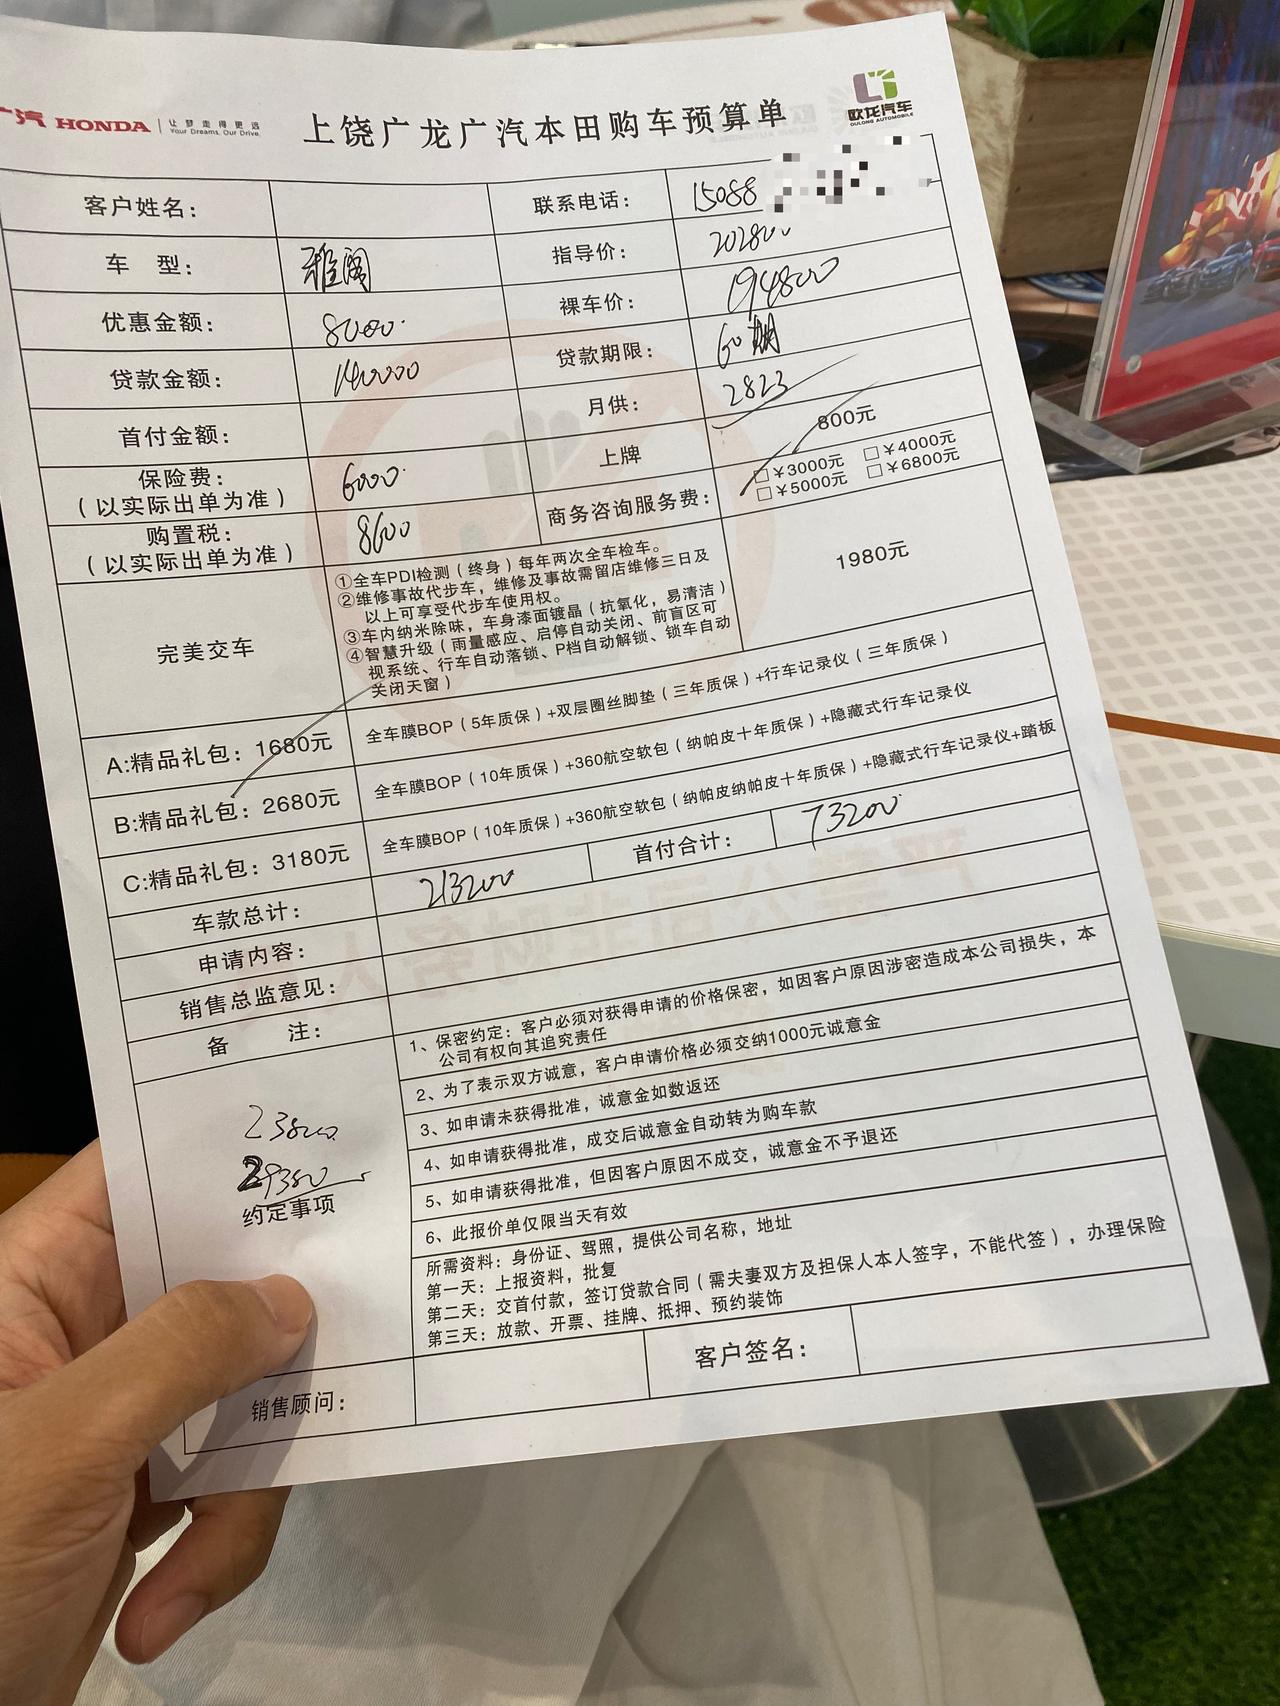 广汽 HONDA 让梦走得更远
Your Dreams, Our Drive.
上饶广龙广汽本田购车预算单
欧龙汽车
OULONG AUTOMOBILE
客户姓名: 联系电话: 15088
车 型: 雅阁 指导价: 202800
优惠金额: 8000 裸车价: 194800
贷款金额: 140000 贷款期限: 60期
首付金额: 月供: 2823
保险费:
(以实际出单为准) 6000 上牌 800元
购置税:
(以实际出单为准) 8600 商务咨询服务费: □¥3000元 □¥4000元
□¥5000元 □¥6800元
完美交车
①全车PDI检测(终身)每年两次全车检车。
②维修事故代步车,维修及事故需留店维修三日及
以上可享受代步车使用权。
③车内纳米除味,车身漆面镀晶(抗氧化,易清洁)
④智慧升级(雨量感应、启停自动关闭、前盲区可
视系统、行车自动落锁、P档自动解锁、锁车自动
关闭天窗)
1980元
A:精品礼包:1680元 全车膜BOP(5年质保)+双层圈丝脚垫(三年质保)+行车记录仪(三年质保)
B:精品礼包:2680元 全车膜BOP(10年质保)+360航空软包(纳帕皮十年质保)+隐藏式行车记录仪
C:精品礼包:3180元 全车膜BOP(10年质保)+360航空软包(纳帕皮纳帕皮十年质保)+隐藏式行车记录仪+踏板
车款总计: 213200 首付合计: 73200
申请内容:
销售总监意见:
备 注:
1、保密约定:客户必须对获得申请的价格保密,如因客户原因涉密造成本公司损失,本
公司有权向其追究责任
2、为了表示双方诚意,客户申请价格必须交纳1000元诚意金
3、如申请未获得批准,诚意金如数返还
4、如申请获得批准,成交后诚意金自动转为购车款
5、如申请获得批准,但因客户原因不成交,诚意金不予退还
6、此报价单仅限当天有效
23800
29380
约定事项
所需资料:身份证、驾照,提供公司名称,地址
第一天:上报资料,批复
第二天:交首付款,签订贷款合同(需夫妻双方及担保人本人签字,不能代签),办理保险
第三天:放款、开票、挂牌、抵押、预约装饰
销售顾问: 客户签名: